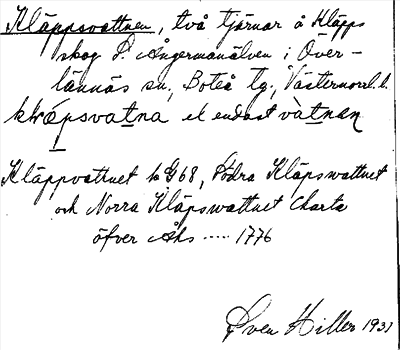 Kläppsvattnen, två tjärnar å Kläpps
skog S. Ångermanälven i Över-
lännäs sn, Boteå tg, Västernorrl. l.
vàtnan el endast
Kläppvattnet k G68, Södra Kläpswattnet
och Norra Kläpswattnet Charta
öfver Åhs ..... 1776
Sven Hiller 1931